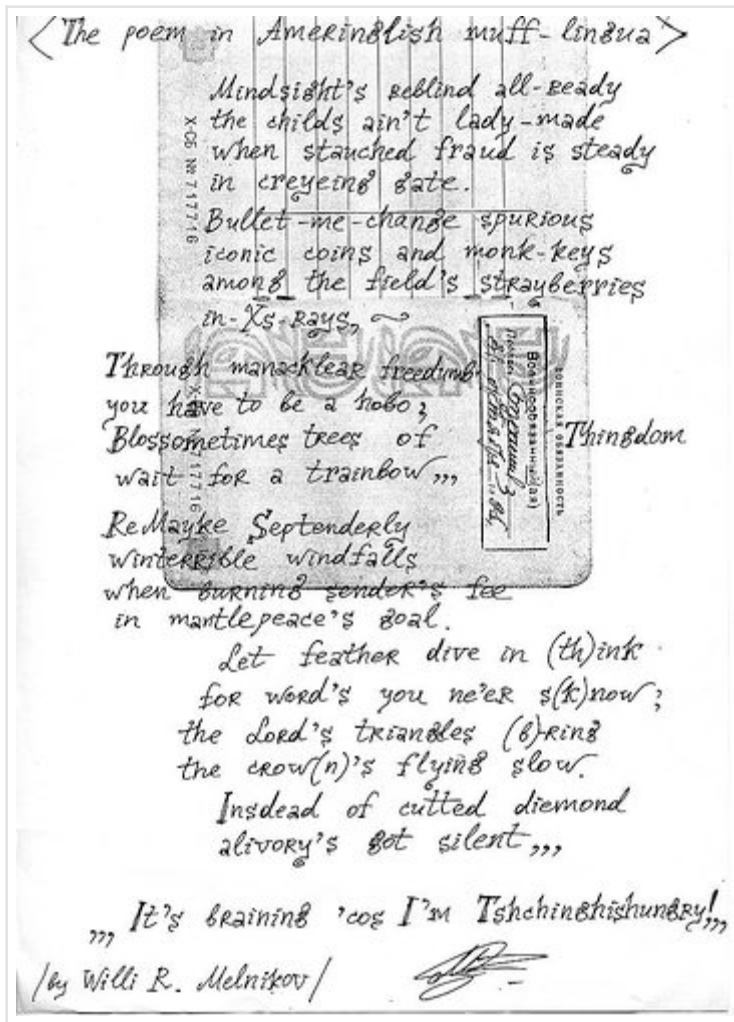 <The poem in Ameringlish muff-lingua>
Mindsight's reblind all-ready
the childs ain't lady-made
when stauched fraud is steady
in creyeing gate.
Bullet-me-change spurious
iconic coins and monk-keys
among the field's strayberries
in-Xs-Rays,,
Through manacklear freedumb
you have to be a hobo;
Blossometimes trees of Thingdom
wait for a trainbow,,,
ReMayke Septenderly
winterrible windfalls
when burning sender's fee
in mantlepeace's goal.
Let feather dive in (th)ink
for word's you ne'er s(k)now;
the Lord's triangles (b)-ring
the crow(n)'s flying slow.
Insdead of cutted diemond
alivory's got silent,,,
,,, It's braining 'cos I'm Tshchinghishungry!,,,
/by Willi R. Melnikov/
X-СБ № 717716
717716
ВОИНСКАЯ ОБЯЗАННОСТЬ
Военнообязанный(ая)